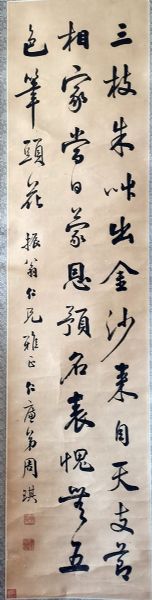 三枝朱咮出金沙来自天支節
相家當日蒙恩預名表愧無五
色筆頭花 振翁仁兄雅正 仁弟周琪